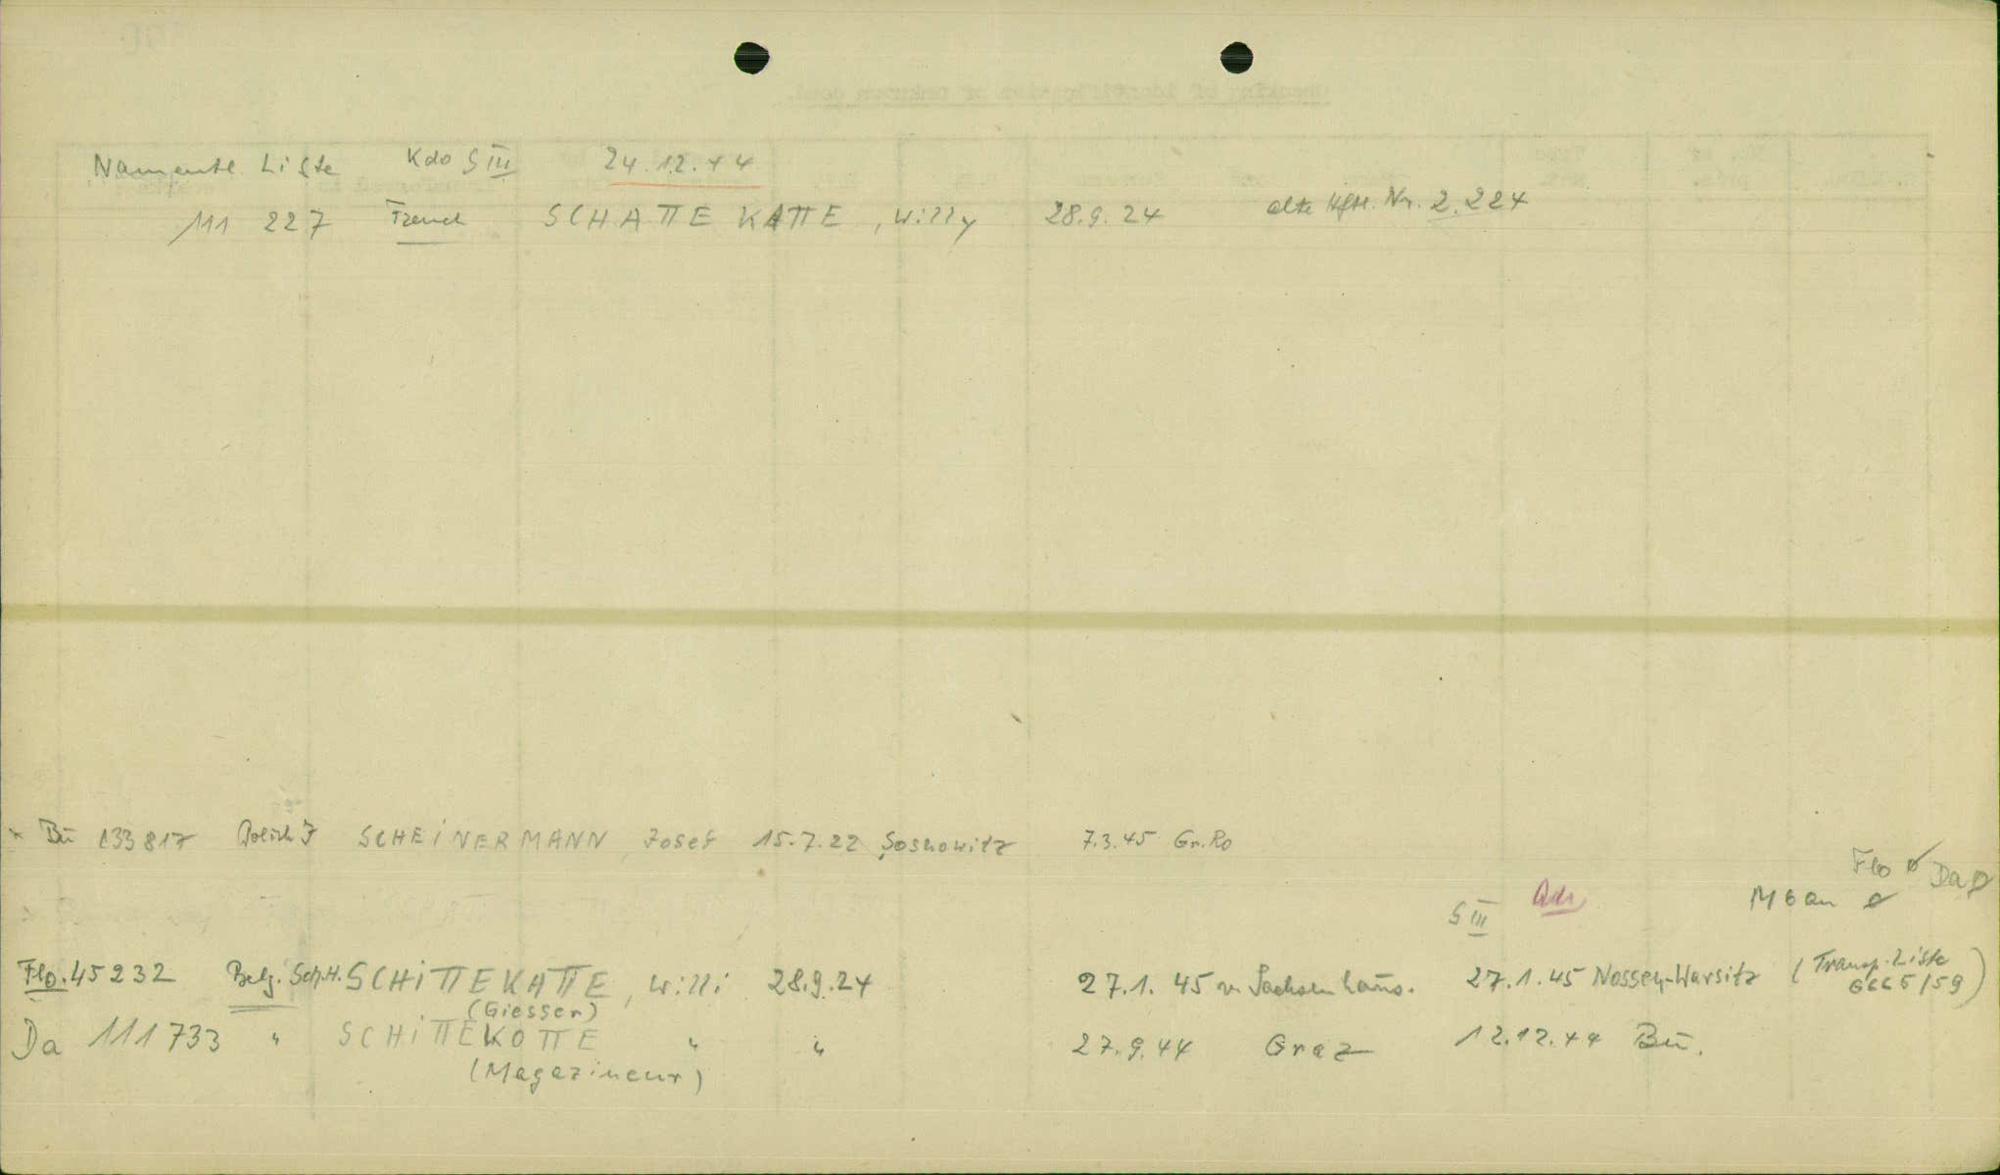 Namentl. Liste Kdo S III 24.12.44
111 227 Französ SCHATTEKATTE, Willy 28.9.24 alte Hftl. Nr. 2.224
x Bu 133817 Polish J SCHEINERMANN, Josef 15.7.22 Sosnowitz 7.3.45 Gr.Ro
Flo Da
S III M6au
Flo. 45232 Belg. Sch.H. SCHITTEKATTE, Willi 28.9.24 27.1.45 v. Sachsenhaus. 27.1.45 Nossen-Warsitz (Transp. Liste
(Giesser) GCC 5/59)
Da 111733 " SCHITTEKOTTE " " 27.9.44 Graz 12.12.44 Bu.
(Magazineur)